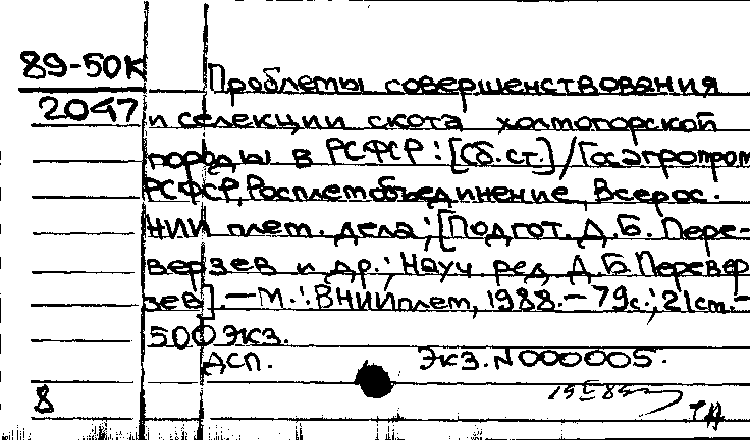 89-50К
2047
Проблемы совершенствования
и селекции скота холмогорской
породы в РСФСР: [Сб.ст.]/Госагропром
РСФСР, Росплемобъединение, Всерос.
НИИ плем. дела; [Подгот. Д.Б. Пере-
верзев и др.; Науч ред Д.Б Перевер
зев]. — М.: ВНИИплем, 1988. – 79с.; 21см. –
500 экз.
ДСП. Экз. N000005.
8